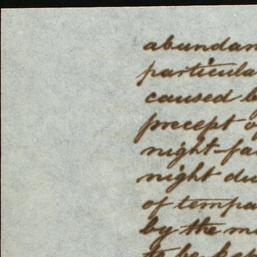 abundan
particula
caused b
precept o
night-fa
night du
of tempa
by the m
to be kep